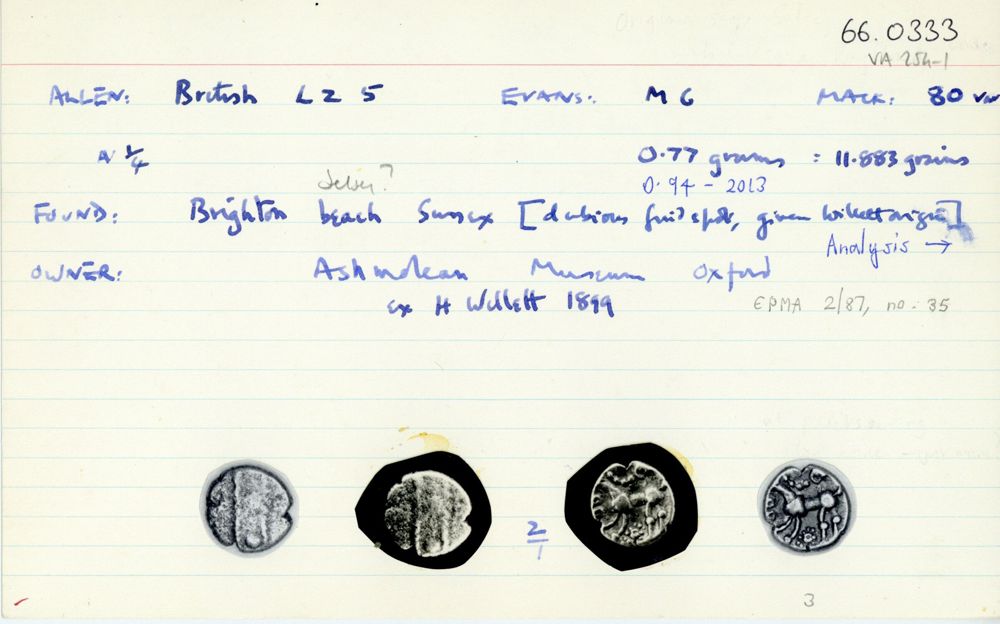 66.0333
VA 254-1
ALLEN: British LZ 5 EVANS: M 6 MACK: 80 var
N 1/4 0.77 grams = 11.883 grains
Selsey? 0.94 - 2013
FOUND: Brighton beach Sussex [dubious findspot, given Willett origin]
Analysis →
OWNER: Ashmolean Museum Oxford
ex H Willett 1899 EPMA 2/87, no. 35
2/1
3